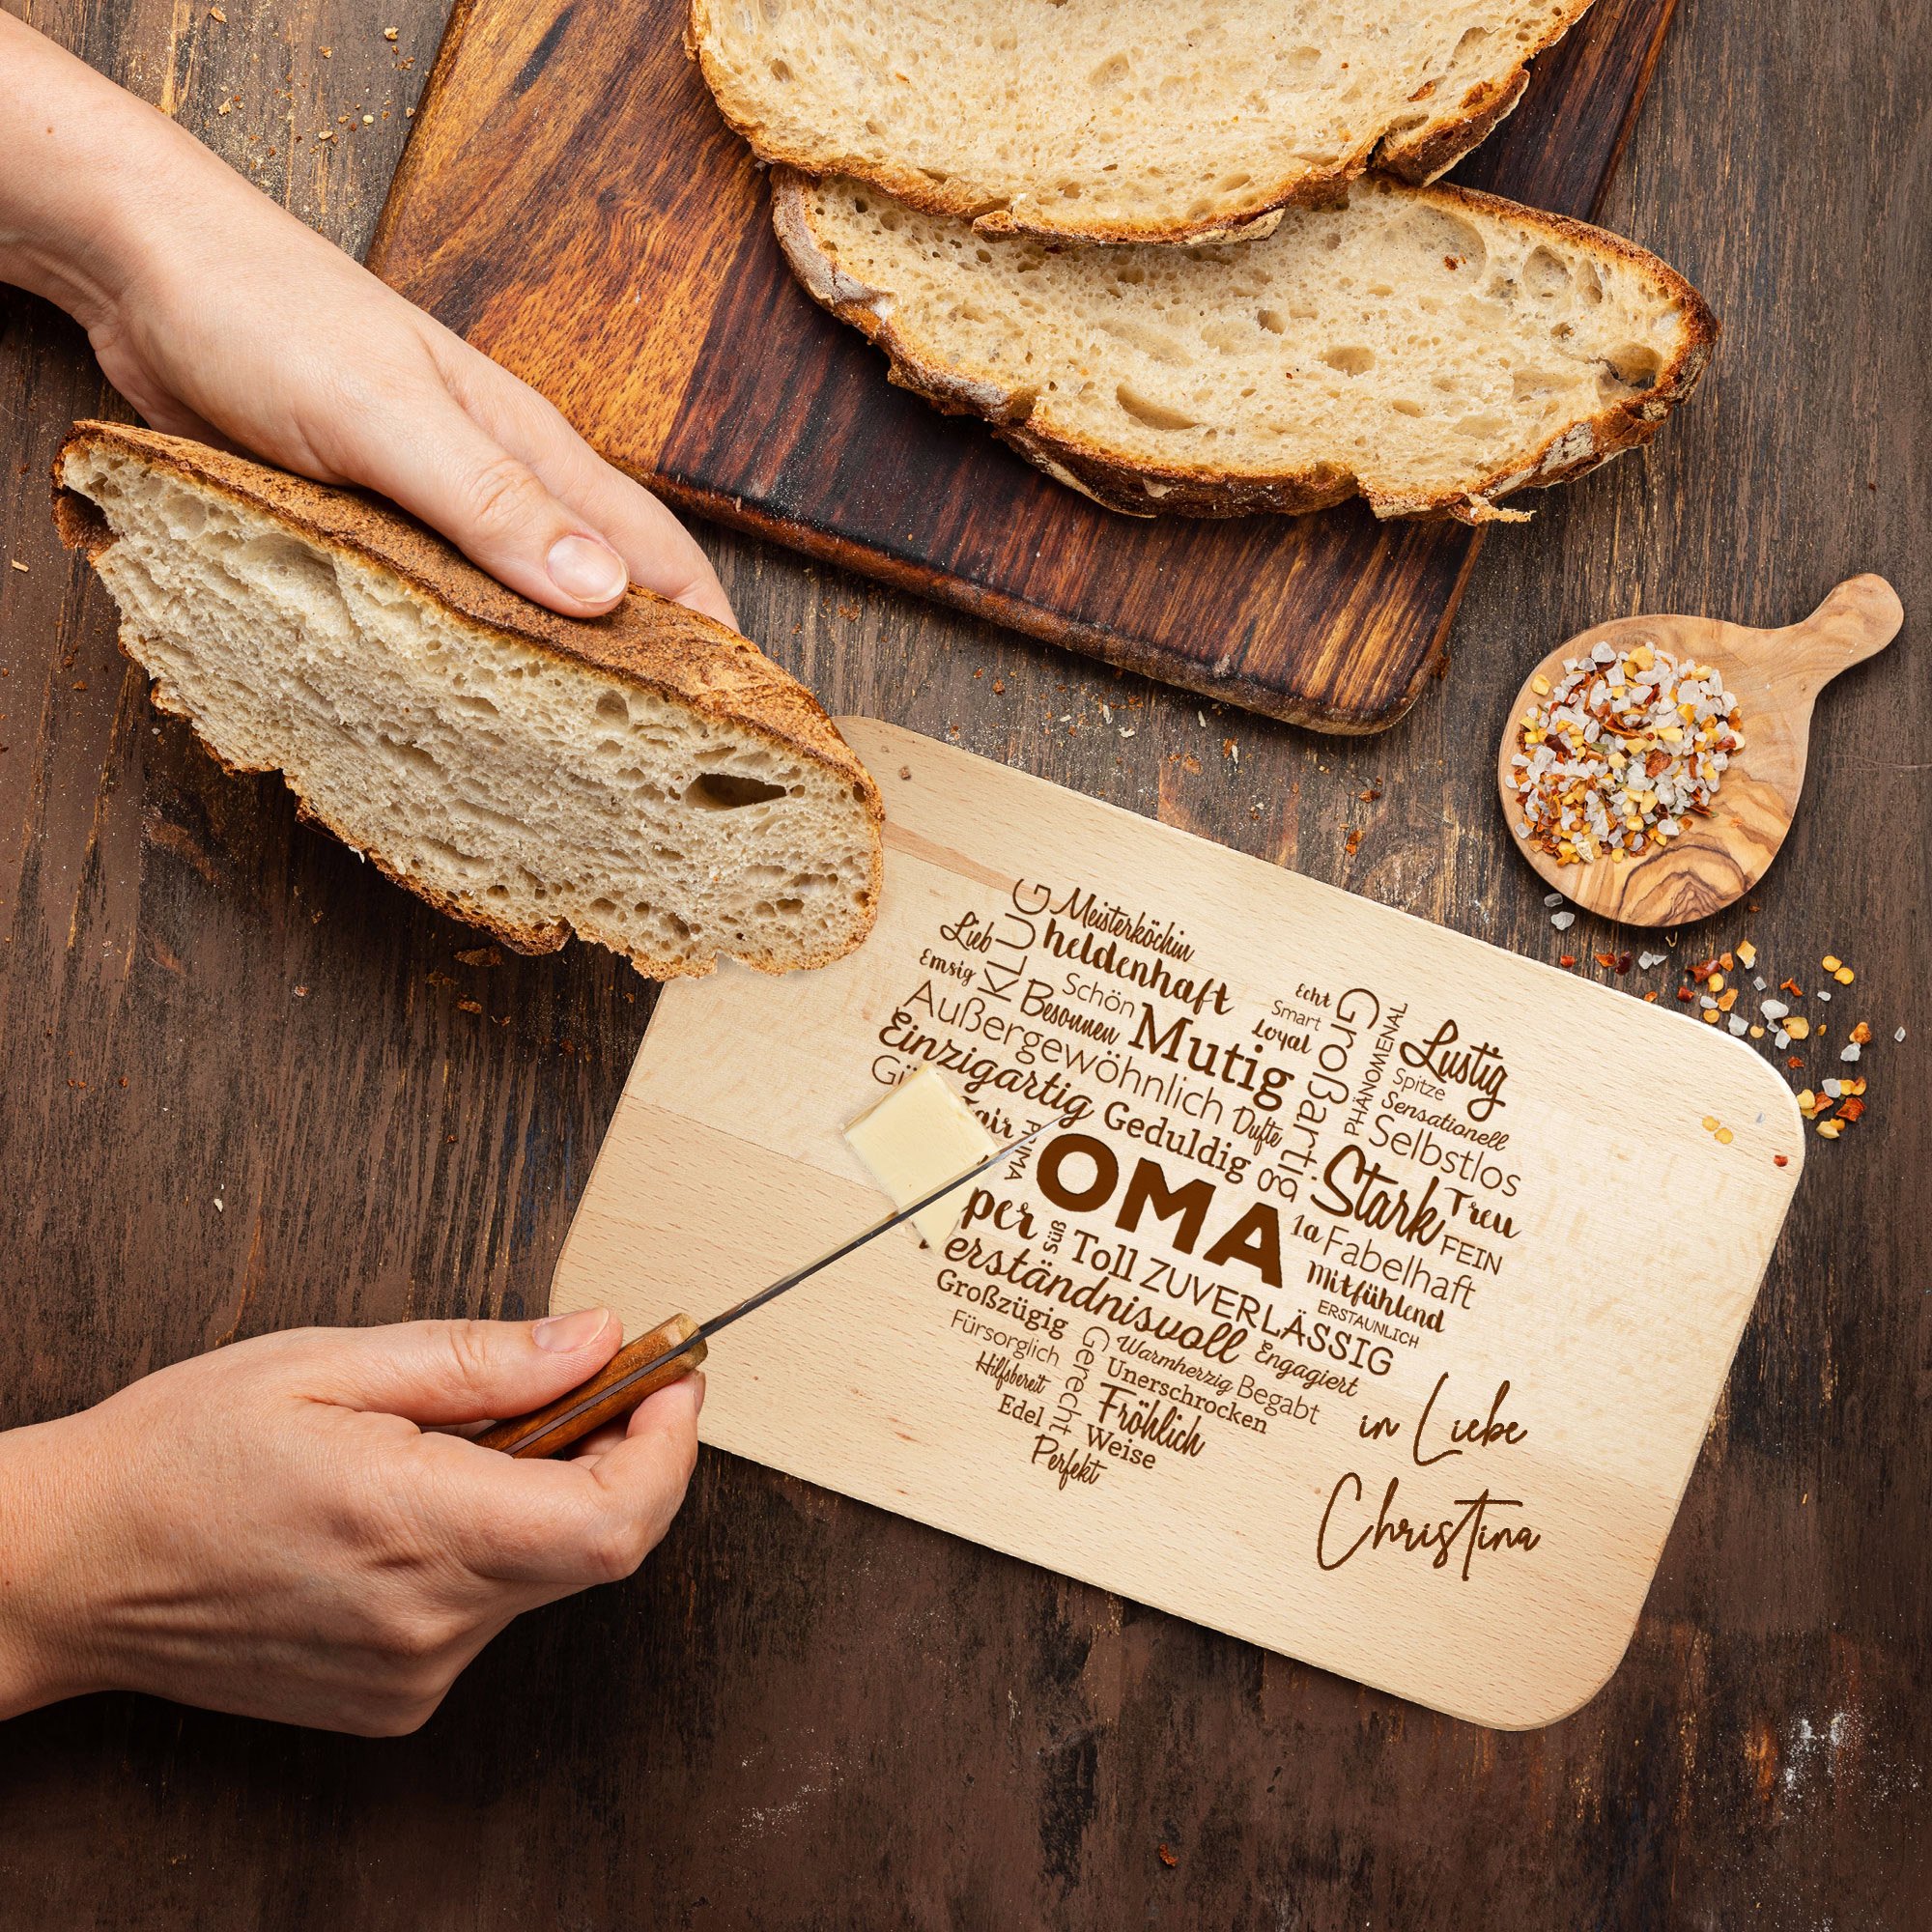 Meisterköchin
Klug
Lieb
heldenhaft
Emsig
Schön
Besonnen
Außergewöhnlich
Mutig
Einzigartig
Echt
Smart
Loyal
Großartig
PHÄNOMENAL
Lustig
Spitze
Sensationell
Selbstlos
Geduldig
Dufte
PRIMA
OMA
Stark
Treu
FEIN
1a
Fabelhaft
Mitfühlend
ERSTAUNLICH
süß
Toll
ZUVERLÄSSIG
erständnisvoll
Großzügig
Fürsorglich
Hilfsbereit
Gerecht
Warmherzig
Engagiert
Unerschrocken
Begabt
Edel
Fröhlich
Weise
Perfekt
in Liebe
Christina